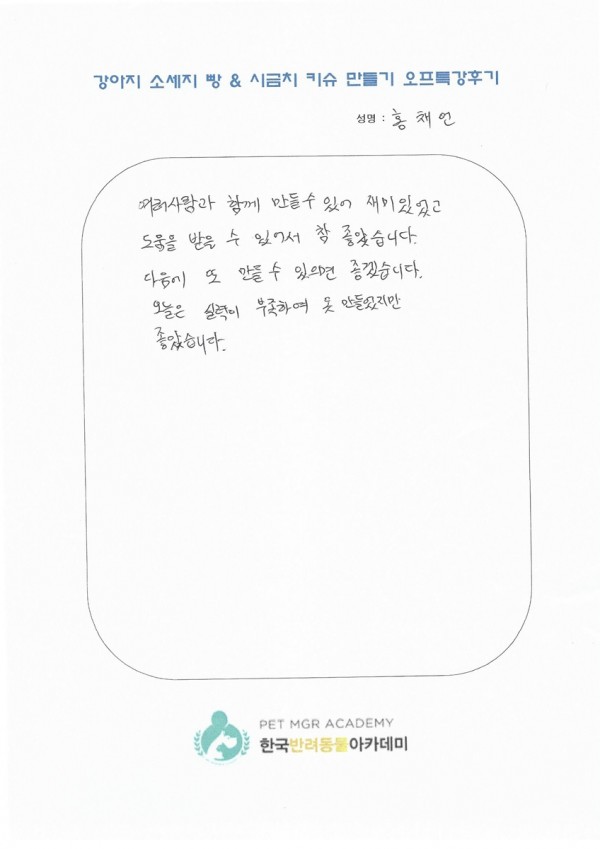 강아지 소세지 빵 & 시금치 키슈 만들기 오프특강후기
성명 : 홍채언
여러사람과 함께 만들수 있어 재미있었고
도움을 받을 수 있어서 참 좋았습니다.
다음에 또 만들 수 있으면 좋겠습니다.
오늘은 실력이 부족하여 못 만들었지만
좋았습니다.
PET MGR ACADEMY
한국반려동물아카데미